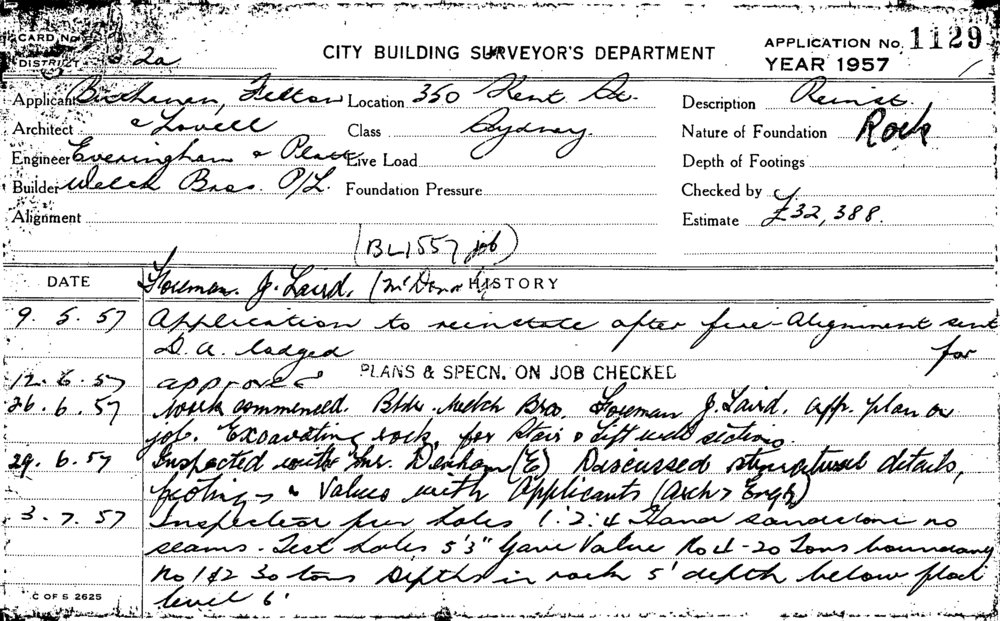 CARD No.
DISTRICT 2a
CITY BUILDING SURVEYOR'S DEPARTMENT
APPLICATION No. 1129
YEAR 1957
Applicant Buchanan, Felton Location 350 Kent St. Description Reinst.
Architect & Lovell Class Sydney. Nature of Foundation Rock
Engineer Everingham & Platt Live Load Depth of Footings
Builder Welch Bros. P/L. Foundation Pressure Checked by
Alignment Estimate £32,388.
(BL 1557 job)
DATE Foreman. J. Laird. HISTORY
9.5.57 Application to reinstate after fire - Alignment sent
D.A. lodged for
12.6.57 approved PLANS & SPECN. ON JOB CHECKED
26.6.57 Work commenced. Bldr. Welch Bros. Foreman J. Laird. app. plan on
job. Excavating rock, for Stair & Lift well sections.
29.6.57 Inspected with Mr. Denham (E) Discussed structural details,
footings & Values with Applicants (Arch & Engr)
3.7.57 Inspected pier holes 1:2:4 Hard sandstone no
seams. Test holes 5'3" Gave Value No 4 - 20 Tons boundary
No 1 & 2 30 tons Depths in rock 5' depth below floor
level 6'
C OF S 2625